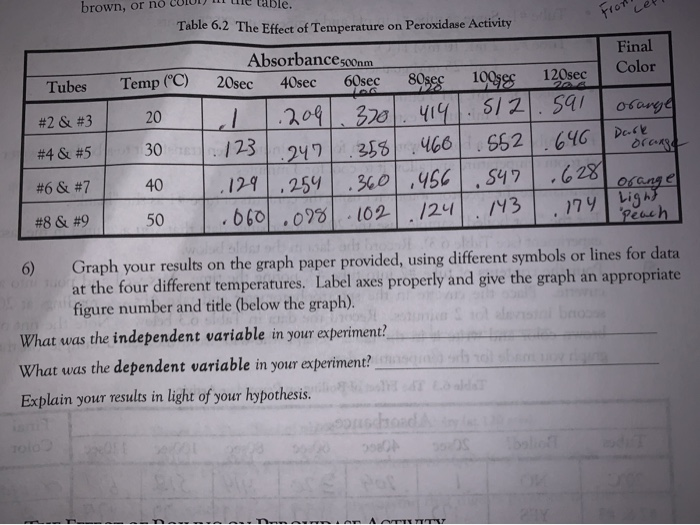 brown, or no color) in the table.
Table 6.2 The Effect of Temperature on Peroxidase Activity
Absorbance500nm Final Color
Tubes Temp (°C) 20sec 40sec 60sec 80sec 100sec 120sec
#2 & #3 20 .1 .209 .320 .414 .512 .591 orange
#4 & #5 30 .123 .247 .358 .460 .552 .646 Dark orange
#6 & #7 40 .129 .254 .360 .456 .547 .628 orange
#8 & #9 50 .060 .078 .102 .124 .143 .174 Light Peach
6) Graph your results on the graph paper provided, using different symbols or lines for data
at the four different temperatures. Label axes properly and give the graph an appropriate
figure number and title (below the graph).
What was the independent variable in your experiment?
What was the dependent variable in your experiment?
Explain your results in light of your hypothesis.